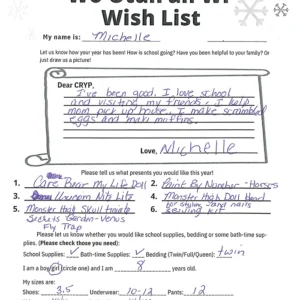 Wish List
My name is: Michelle
Let us know how your year has been! How is school going? Have you been helpful to your family? Or
just draw us a picture!
Dear CRYP,
I've been good. I love school
and visiting my friends, I help
mom pick up house. I make scrambled
eggs and make muffins.
Love, Michelle
Please tell us what presents you would like this year!
1. Care Bear My Life Doll 2. Paint By Number - Horses
3. Unicorn Nite Lite 4. Monster High Doll Head
for styling and nails
5. Monster High Skulltimate 6. Sewing kit
Secrets Garden - Venus
Fly Trap
Please let us know whether you would like school supplies, bedding or some bath-time sup-
plies. (Please check those you need):
School Supplies: ✓ Bath-time Supplies: ✓ Bedding (Twin/Full/Queen): twin
I am a boy/girl (circle one) and I am 8 years old.
My sizes are:
Shoes: 3.5 Underwear: 10-12 Pants: 12